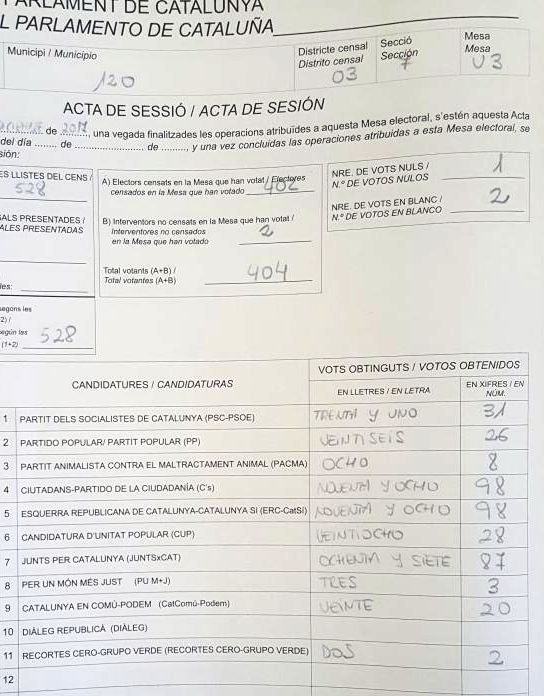 PARLAMENT DE CATALUNYA
L PARLAMENTO DE CATALUÑA
Municipi / Municipio
120
Districte censal
Distrito censal
03
Secció
Sección
7
Mesa
Mesa
U3
ACTA DE SESSIÓ / ACTA DE SESIÓN
de 2017, una vegada finalitzades les operacions atribuïdes a aquesta Mesa electoral, s'estén aquesta Acta
del día ........ de ........................ de ........., y una vez concluidas las operaciones atribuidas a esta Mesa electoral, se
sión:
ES LLISTES DEL CENS /
528
ALS PRESENTADES /
ALES PRESENTADAS
les:
segons les
2) /
según las
(1+2) 528
A) Electors censats en la Mesa que han votat / Electores
censados en la Mesa que han votado 402
B) Interventors no censats en la Mesa que han votat /
Interventores no censados
en la Mesa que han votado 2
Total votants (A+B) /
Total votantes (A+B) 404
NRE. DE VOTS NULS /
N.º DE VOTOS NULOS 1
NRE. DE VOTS EN BLANC /
N.º DE VOTOS EN BLANCO 2
CANDIDATURES / CANDIDATURAS
VOTS OBTINGUTS / VOTOS OBTENIDOS
EN LLETRES / EN LETRA
EN XIFRES / EN
NÚM.
1 PARTIT DELS SOCIALISTES DE CATALUNYA (PSC-PSOE) TRENTA Y UNO 31
2 PARTIDO POPULAR/ PARTIT POPULAR (PP) VEINTISEIS 26
3 PARTIT ANIMALISTA CONTRA EL MALTRACTAMENT ANIMAL (PACMA) OCHO 8
4 CIUTADANS-PARTIDO DE LA CIUDADANÍA (C's) NOVENTA Y OCHO 98
5 ESQUERRA REPUBLICANA DE CATALUNYA-CATALUNYA SÍ (ERC-CatSí) NOVENTA Y OCHO 98
6 CANDIDATURA D'UNITAT POPULAR (CUP) VEINTIOCHO 28
7 JUNTS PER CATALUNYA (JUNTSxCAT) OCHENTA Y SIETE 87
8 PER UN MÓN MÉS JUST (PU M+J) TRES 3
9 CATALUNYA EN COMÚ-PODEM (CatComú-Podem) VEINTE 20
10 DIÀLEG REPUBLICÀ (DIÀLEG)
11 RECORTES CERO-GRUPO VERDE (RECORTES CERO-GRUPO VERDE) DOS 2
12